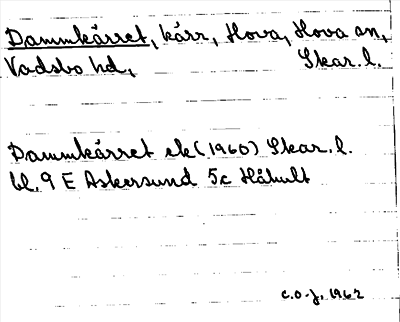 Dammkärret, kärr, Hova, Hova sn,
Vadsbo hd, Skar.l.
Dammkärret ek(1960) Skar.l.
bl. 9 E Askersund 5c Håhult
C.O-j. 1962